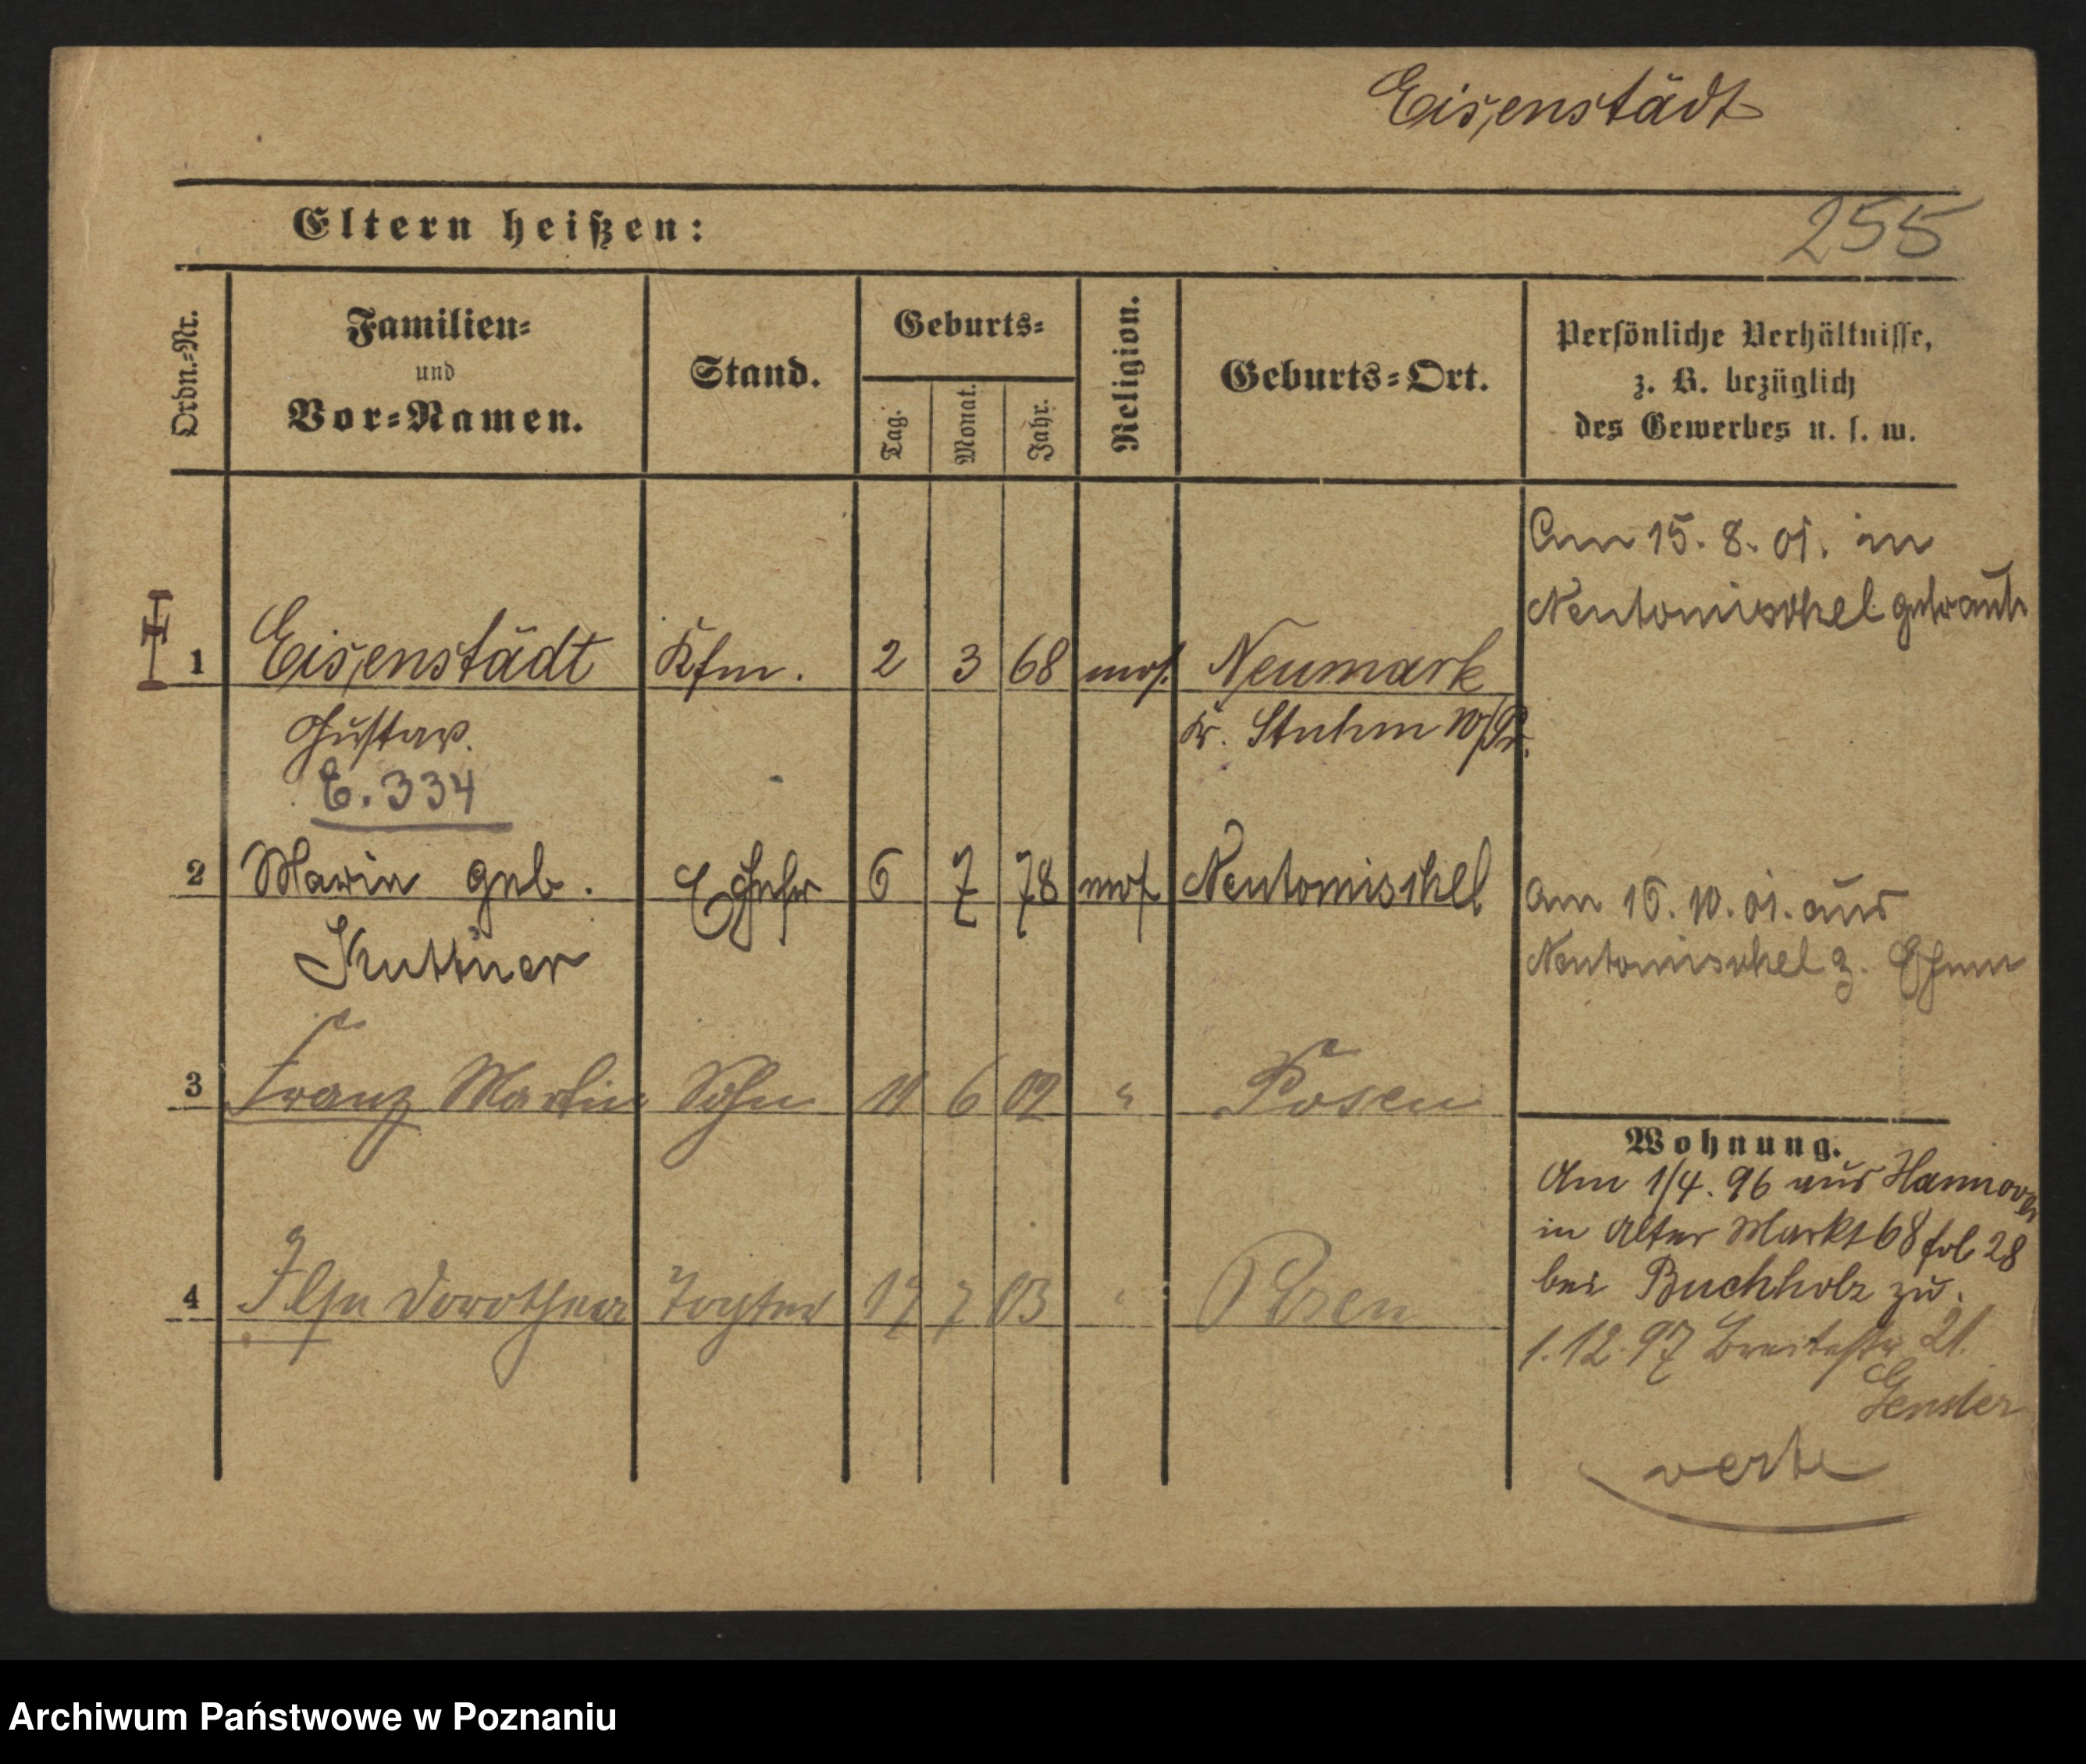 Eisenstädt
Eltern heißen:
255
Ordn.=Nr.
Familien=
und
Vor=Namen.
Stand.
Geburts=
Tag.
Monat.
Jahr.
Religion.
Geburts=Ort.
Persönliche Verhältnisse,
z. B. bezüglich
des Gewerbes u. s. w.
Am 15. 8. 01. in
Neutomischel getraut
1 Eisenstädt Kfm. 2 3 68 mos. Neumark
Gustav. Kr. Stuhm W/Pr.
E. 334
2 Marie geb. Ehefr 6 7 78 mos Neutomischel
Kuttner
Am 15. 10. 01. aus
Neutomischel z. Ehem
3 Franz Martin Sohn 11 6 02 " Posen
4 Ilse Dorothea Tochter 17 7 03 " Posen
Wohnung.
Am 1/4. 96 aus Hannover
in Alter Markt 68 fol 28
bei Buchholz zu.
1. 12. 97 Breitestr 21.
verte
Archiwum Państwowe w Poznaniu